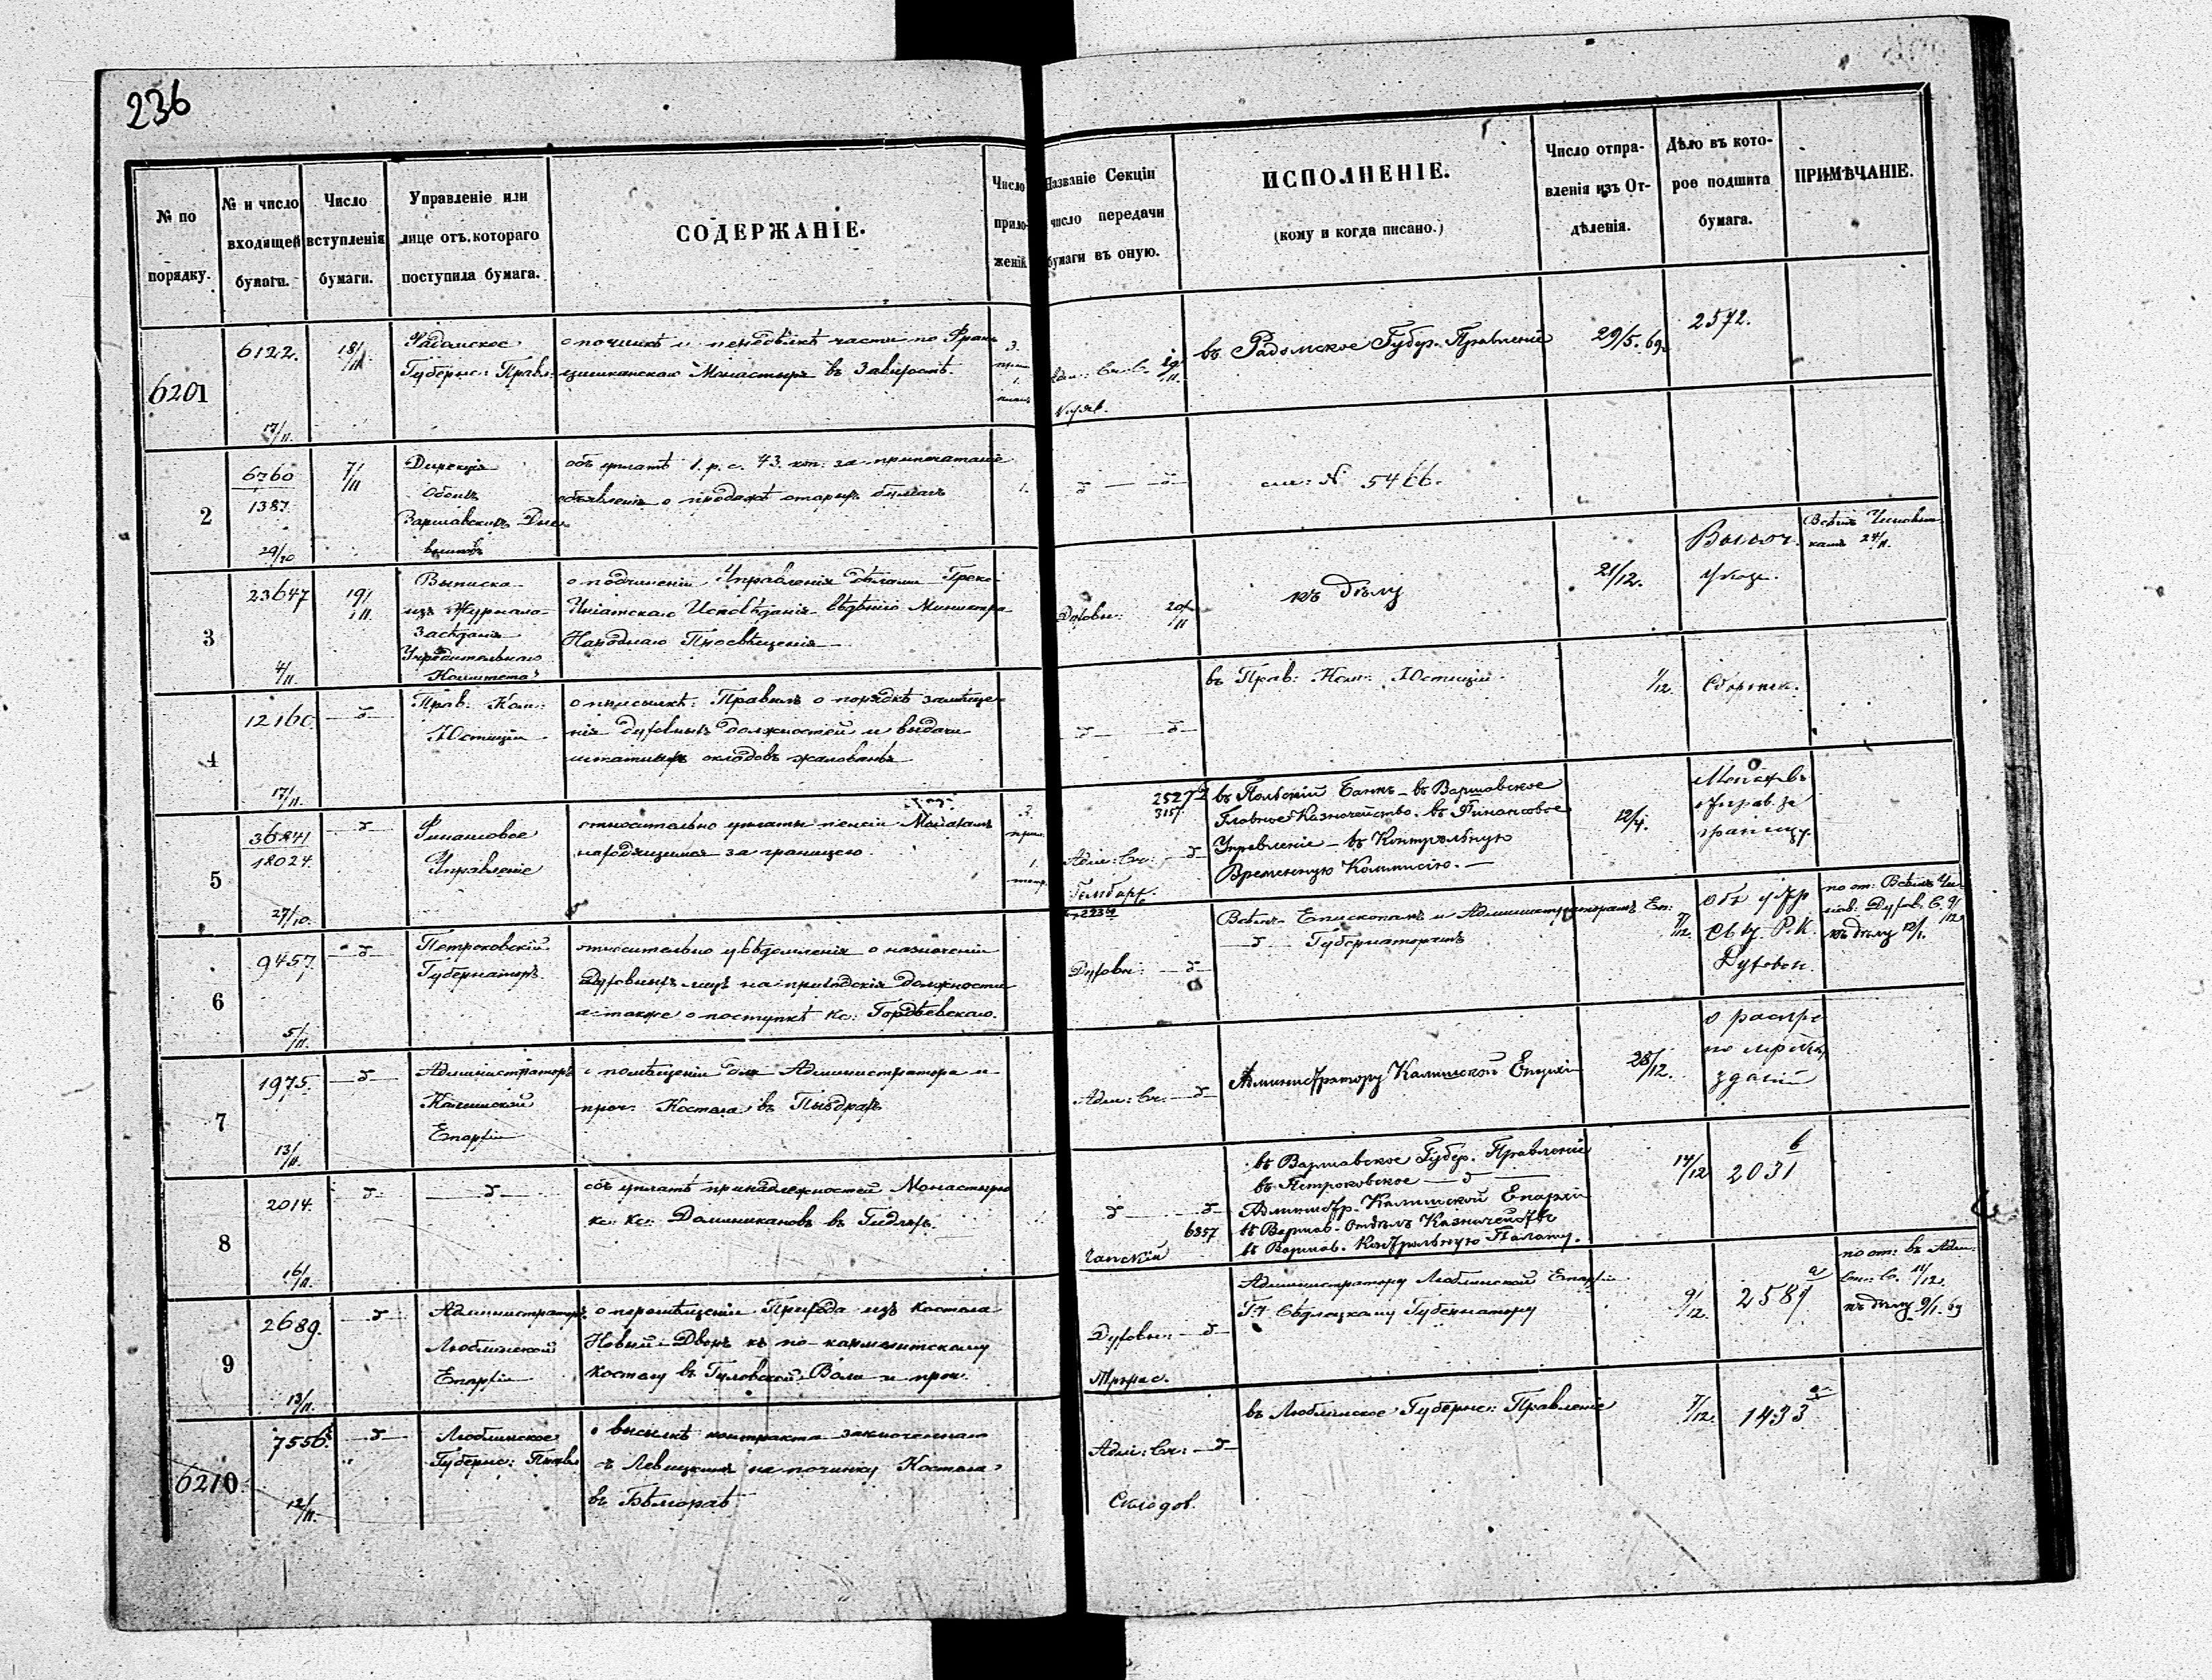 236
№ по порядку.
№ и число входящей бумаги.
Число вступленія бумаги.
Управленіе или лице отъ котораго поступила бумага.
СОДЕРЖАНІЕ.
Число приложеній
Названіе Секціи число передачи бумаги въ оную.
ИСПОЛНЕНІЕ.
(кому и когда писано.)
Число отправленія изъ Отдѣленія.
Дѣло въ которое подшита бумага.
ПРИМѢЧАНІЕ.
6201
6122.
17/11.
18/11
Радомское
Губернс: Правл:
о починкѣ и передѣлкѣ части по Фран
цишканскаго Монастыря въ Завихостѣ.
3.
1.
19/11.
въ Радомское Губер. Правленіе
29/5. 69.
2572.
2
6760
1387.
29/10
7/11
Дирекція
Обоихъ
Варшавскихъ Днев
никовъ
объ уплатѣ 1. р. с. 43. коп: за припечатаніе
объявленія о продажѣ старыхъ бумагъ
1.
см: № 5466.
3
23647
4/11.
19/11.
Выписка
изъ Журнала
Засѣданія
Учредительнаго
Комитета
о подчиненіи Управленія дѣлами Греко
Уніатскаго Исповѣданія вѣдѣнію Министра
Народнаго Просвѣщенія
Духовн: 20/11
къ дѣлу
21/12.
Высоч.
Указ.
Всѣмъ Чиновни
камъ 24/11.
4
12160.
17/11.
Прав: Ком:
Юстиціи
о присылкѣ: Правилъ о порядкѣ замѣще
нія духовныхъ должностей и выдачи
штатныхъ окладовъ жалованья
въ Прав: Ком: Юстиціи
1/12.
Сборник.
5
36841
18024.
27/10.
Финансовое
Управленіе
относительно уплаты пенсіи Монахамъ
находящимся за границею.
3.
прил.
1.
2527
3157
Адм: Сч:
въ Польскій Банкъ - въ Варшавское
Главное Казначейство. въ Финансовое
Управленіе - въ Контрольную
Временную Коммисію.
12/4.
Монахъ
отправ. за
границу.
6
9457.
5/11.
Петроковскій
Губернаторъ.
относительно увѣдомленія о назначеніи
Духовныхъ лицъ на приходскія должности
а также о поступкѣ кс: Гордѣевскаго.
Духовн:
Всѣмъ Епископамъ и Администраторамъ Еп:
Губернаторамъ
9/12.
объ устр
Свѣ. Р. К.
Духовен.
по от: Всѣмъ Чи
нов: Духов. С. 9/12
къ дѣлу 12/1.
7
1975.
13/11.
Администраторъ
Калишской
Епархіи
о помѣщеніи для Администратора и
проч: Костела въ Пыздрахъ
Адм: Сч:
Администратору Калишской Епархіи
28/12.
о распре
зданій
8
2014.
16/11.
объ уплатѣ принадлежностей Монастырю
кс: кс: Доминикановъ въ Гидляхъ.
6357
въ Варшавское Губер. Правленіе
въ Петроковское
Администр. Калишской Епархіи
въ Варшав. Отдѣлъ Казначейства
въ Варшав. Контрольную Палату.
14/12
2031
в
9
2689.
13/11.
Администраторъ
Люблинской
Епархіи
о перемѣщеніи Прихода изъ костела
Новый-Дворъ къ по-кармелитскому
костелу въ Гуловской Воли и проч.
Духовн:
Администратору Люблинской Епархіи
Гну Сѣдлецкому Губернатору
9/12.
2587
а
по от: въ Адм:
11/12.
къ дѣлу 9/1. 69
6210
7556.
12/11.
Люблинское
Губернс: Правл
о высылкѣ контракта заключеннаго
съ Левицкимъ на починку Костела
въ Бѣлгораѣ
Адм: Сч:
Складов.
въ Люблинское Губернс: Правленіе
7/12.
1433
а